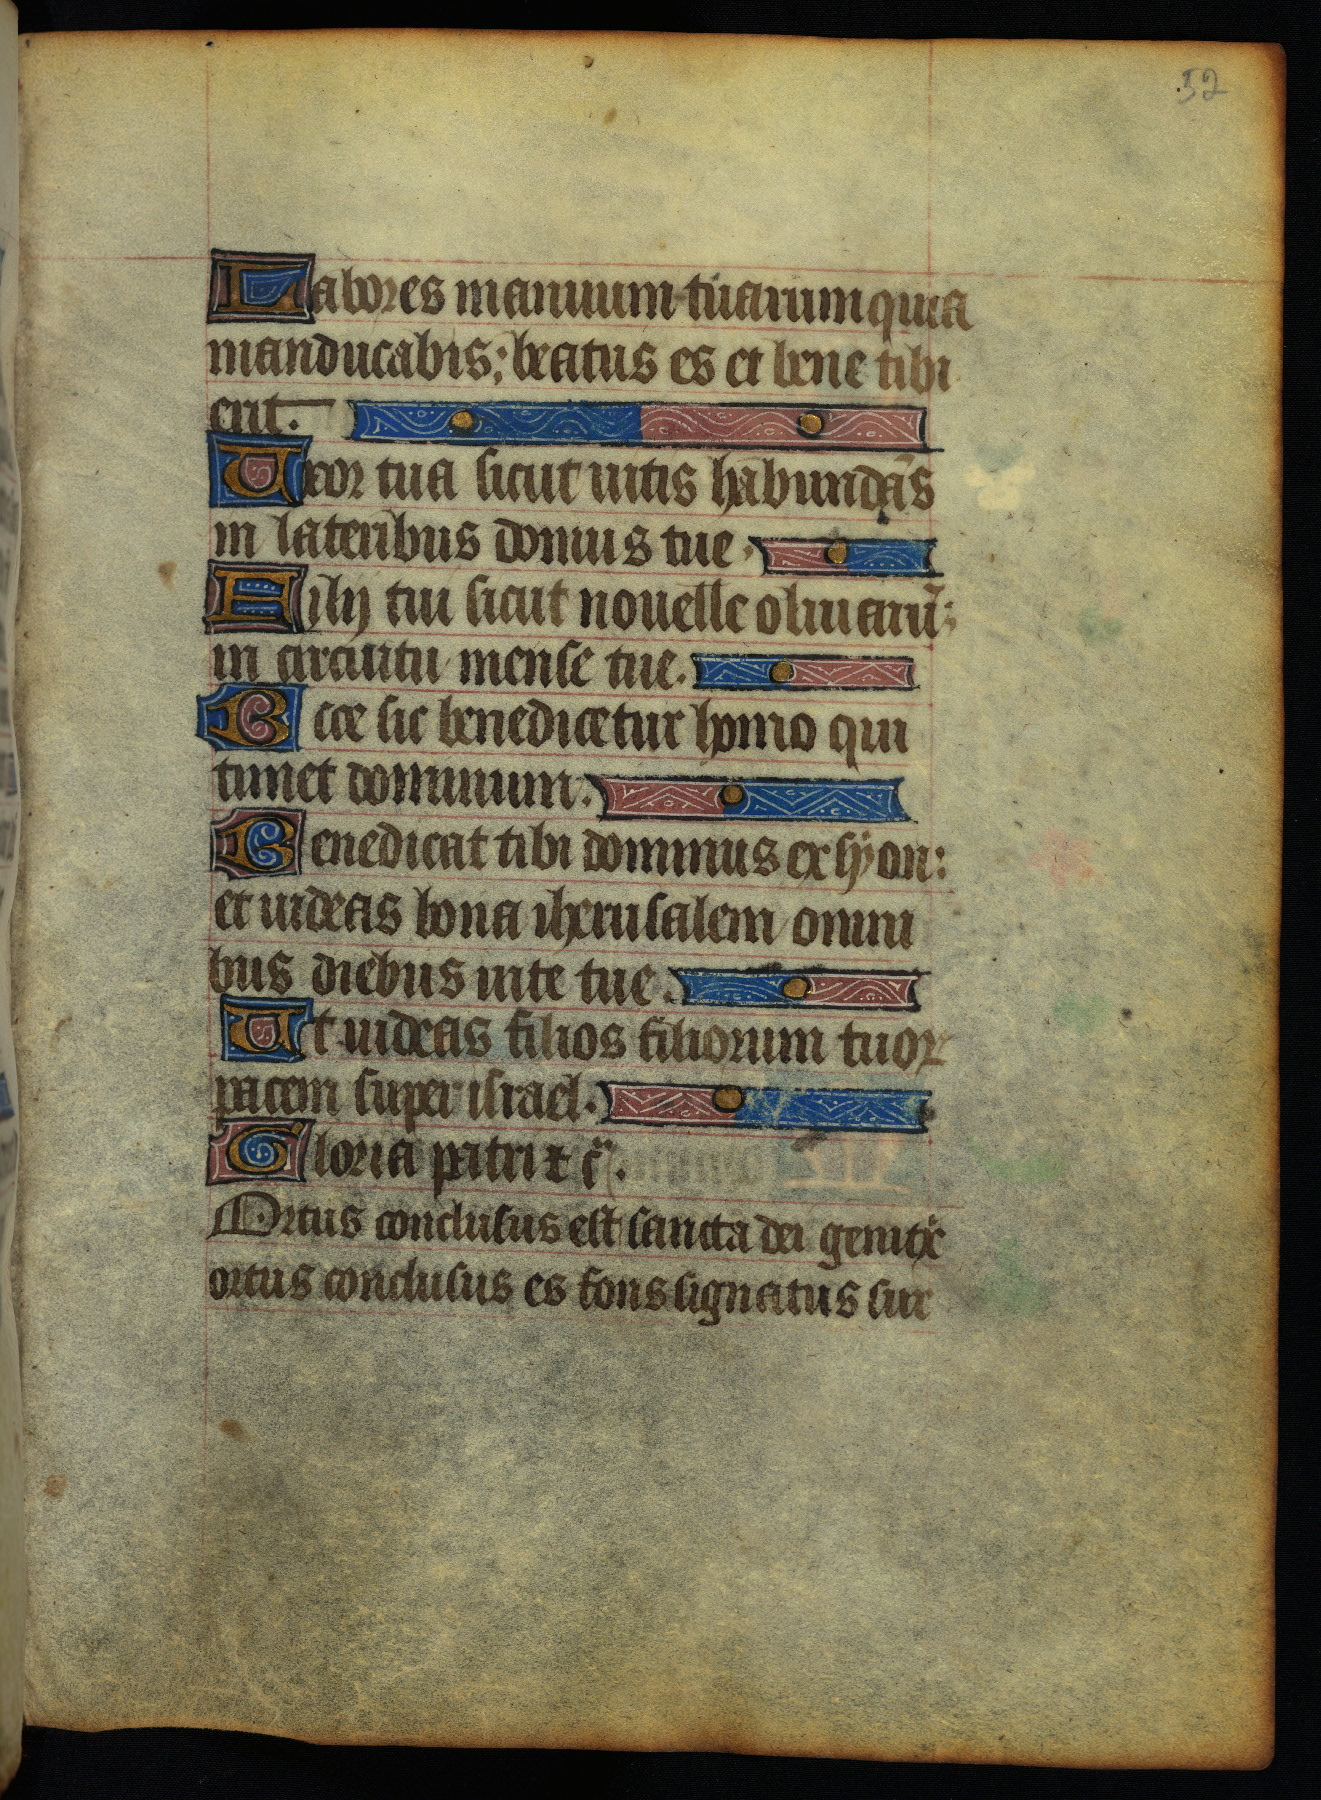 52
Labores manuum tuarum quia
manducabis; beatus es et bene tibi
erit.
Uxor tua sicut uitis habundãs
in lateribus domus tue.
Filij tui sicut nouelle oliuarũ:
in circuitu mense tue.
Ecce sic benedicetur homo qui
timet dominum.
Benedicat tibi dominus ex syon:
et uideas bona iherusalem omni
bus diebus uite tue.
Ut uideas filios filiorum tuoꝝ
pacem super israel.
Gloria patri ⁊ c̃.
Ortus conclusus est sancta dei genitͥx
ortus conclusus es fons signatus sur